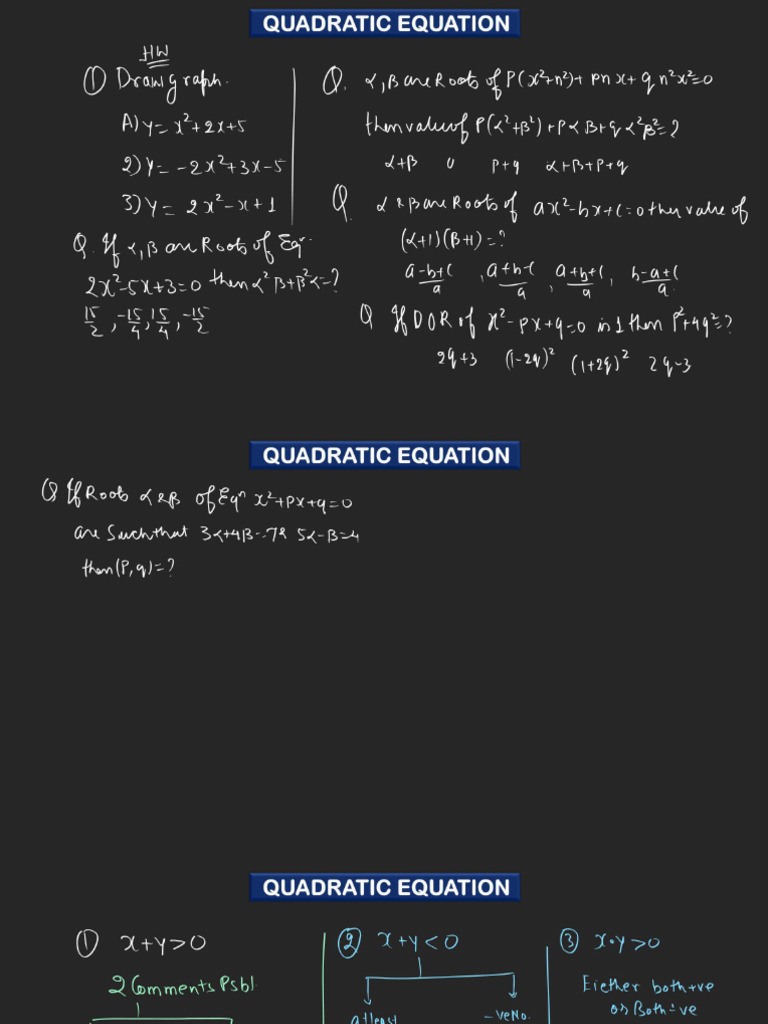 QUADRATIC EQUATION
HW
① Draw graph.
A) y = x²+2x+5
2) y = -2x²+3x-5
3) y = 2x²-x+1
Q. If α,β are Roots of Eqn.
2x²-5x+3=0 then α²β+β²α=?
15/2, -15/4, 15/4, -15/2
Q. α,β are Roots of P(x²+n²)+pnx+qn²x²=0
then value of P(α²+β²)+pαβ+qα²β²=?
α+β 0 p+q α+β+p+q
Q. α & β are Roots of ax²-bx+c=0 then value of
(α+1)(β+1)=?
a-b+c/a, a+b-c/a, a+b+c/a, b-a+c/a
Q If DOR of x²-px+q=0 is 1 then p²+4q²=?
2q+3 (1-2q)² (1+2q)² 2q-3
QUADRATIC EQUATION
Q If Roots α & β of Eqn x²+px+q=0
are Such that 3α+4β=7 & 5α-β=4
then (P,q)=?
QUADRATIC EQUATION
① x+y>0
2 Comments Psbl.
② x+y<0
atleast
-ve No.
③ x·y>0
Eiether both +ve
or Both -ve